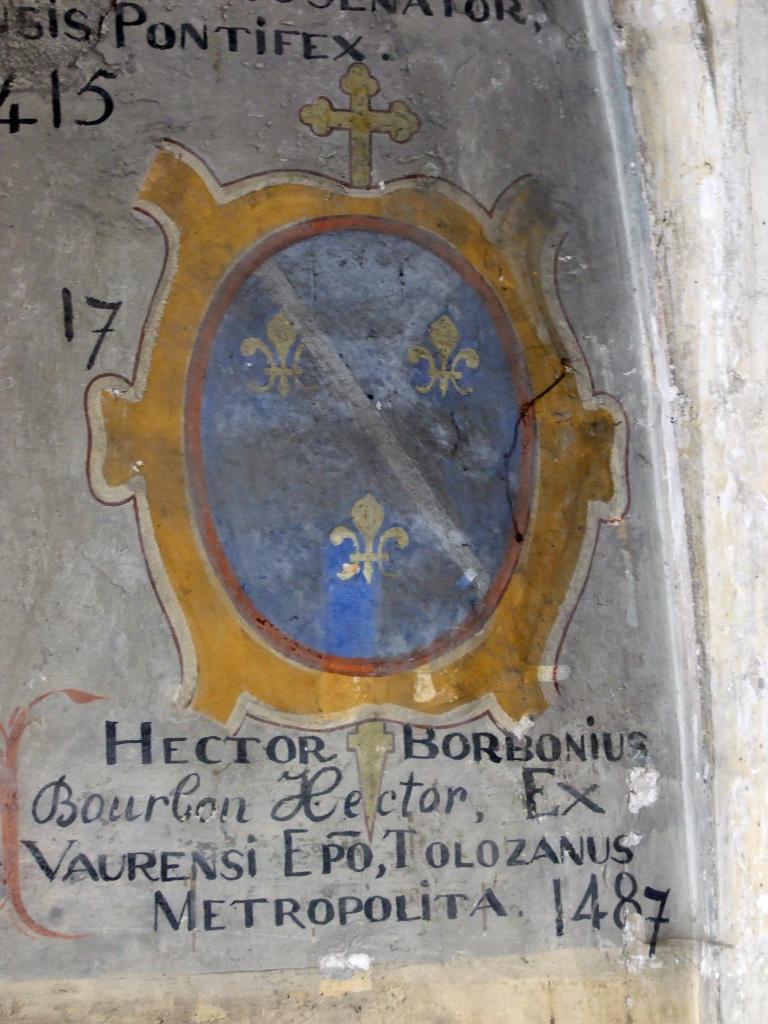 SENATOR,
PONTIFEX.
415
17
HECTOR BORBONIUS
Bourbon Hector, EX
VAURENSI EPŌ, TOLOZANUS
METROPOLITA. 1487